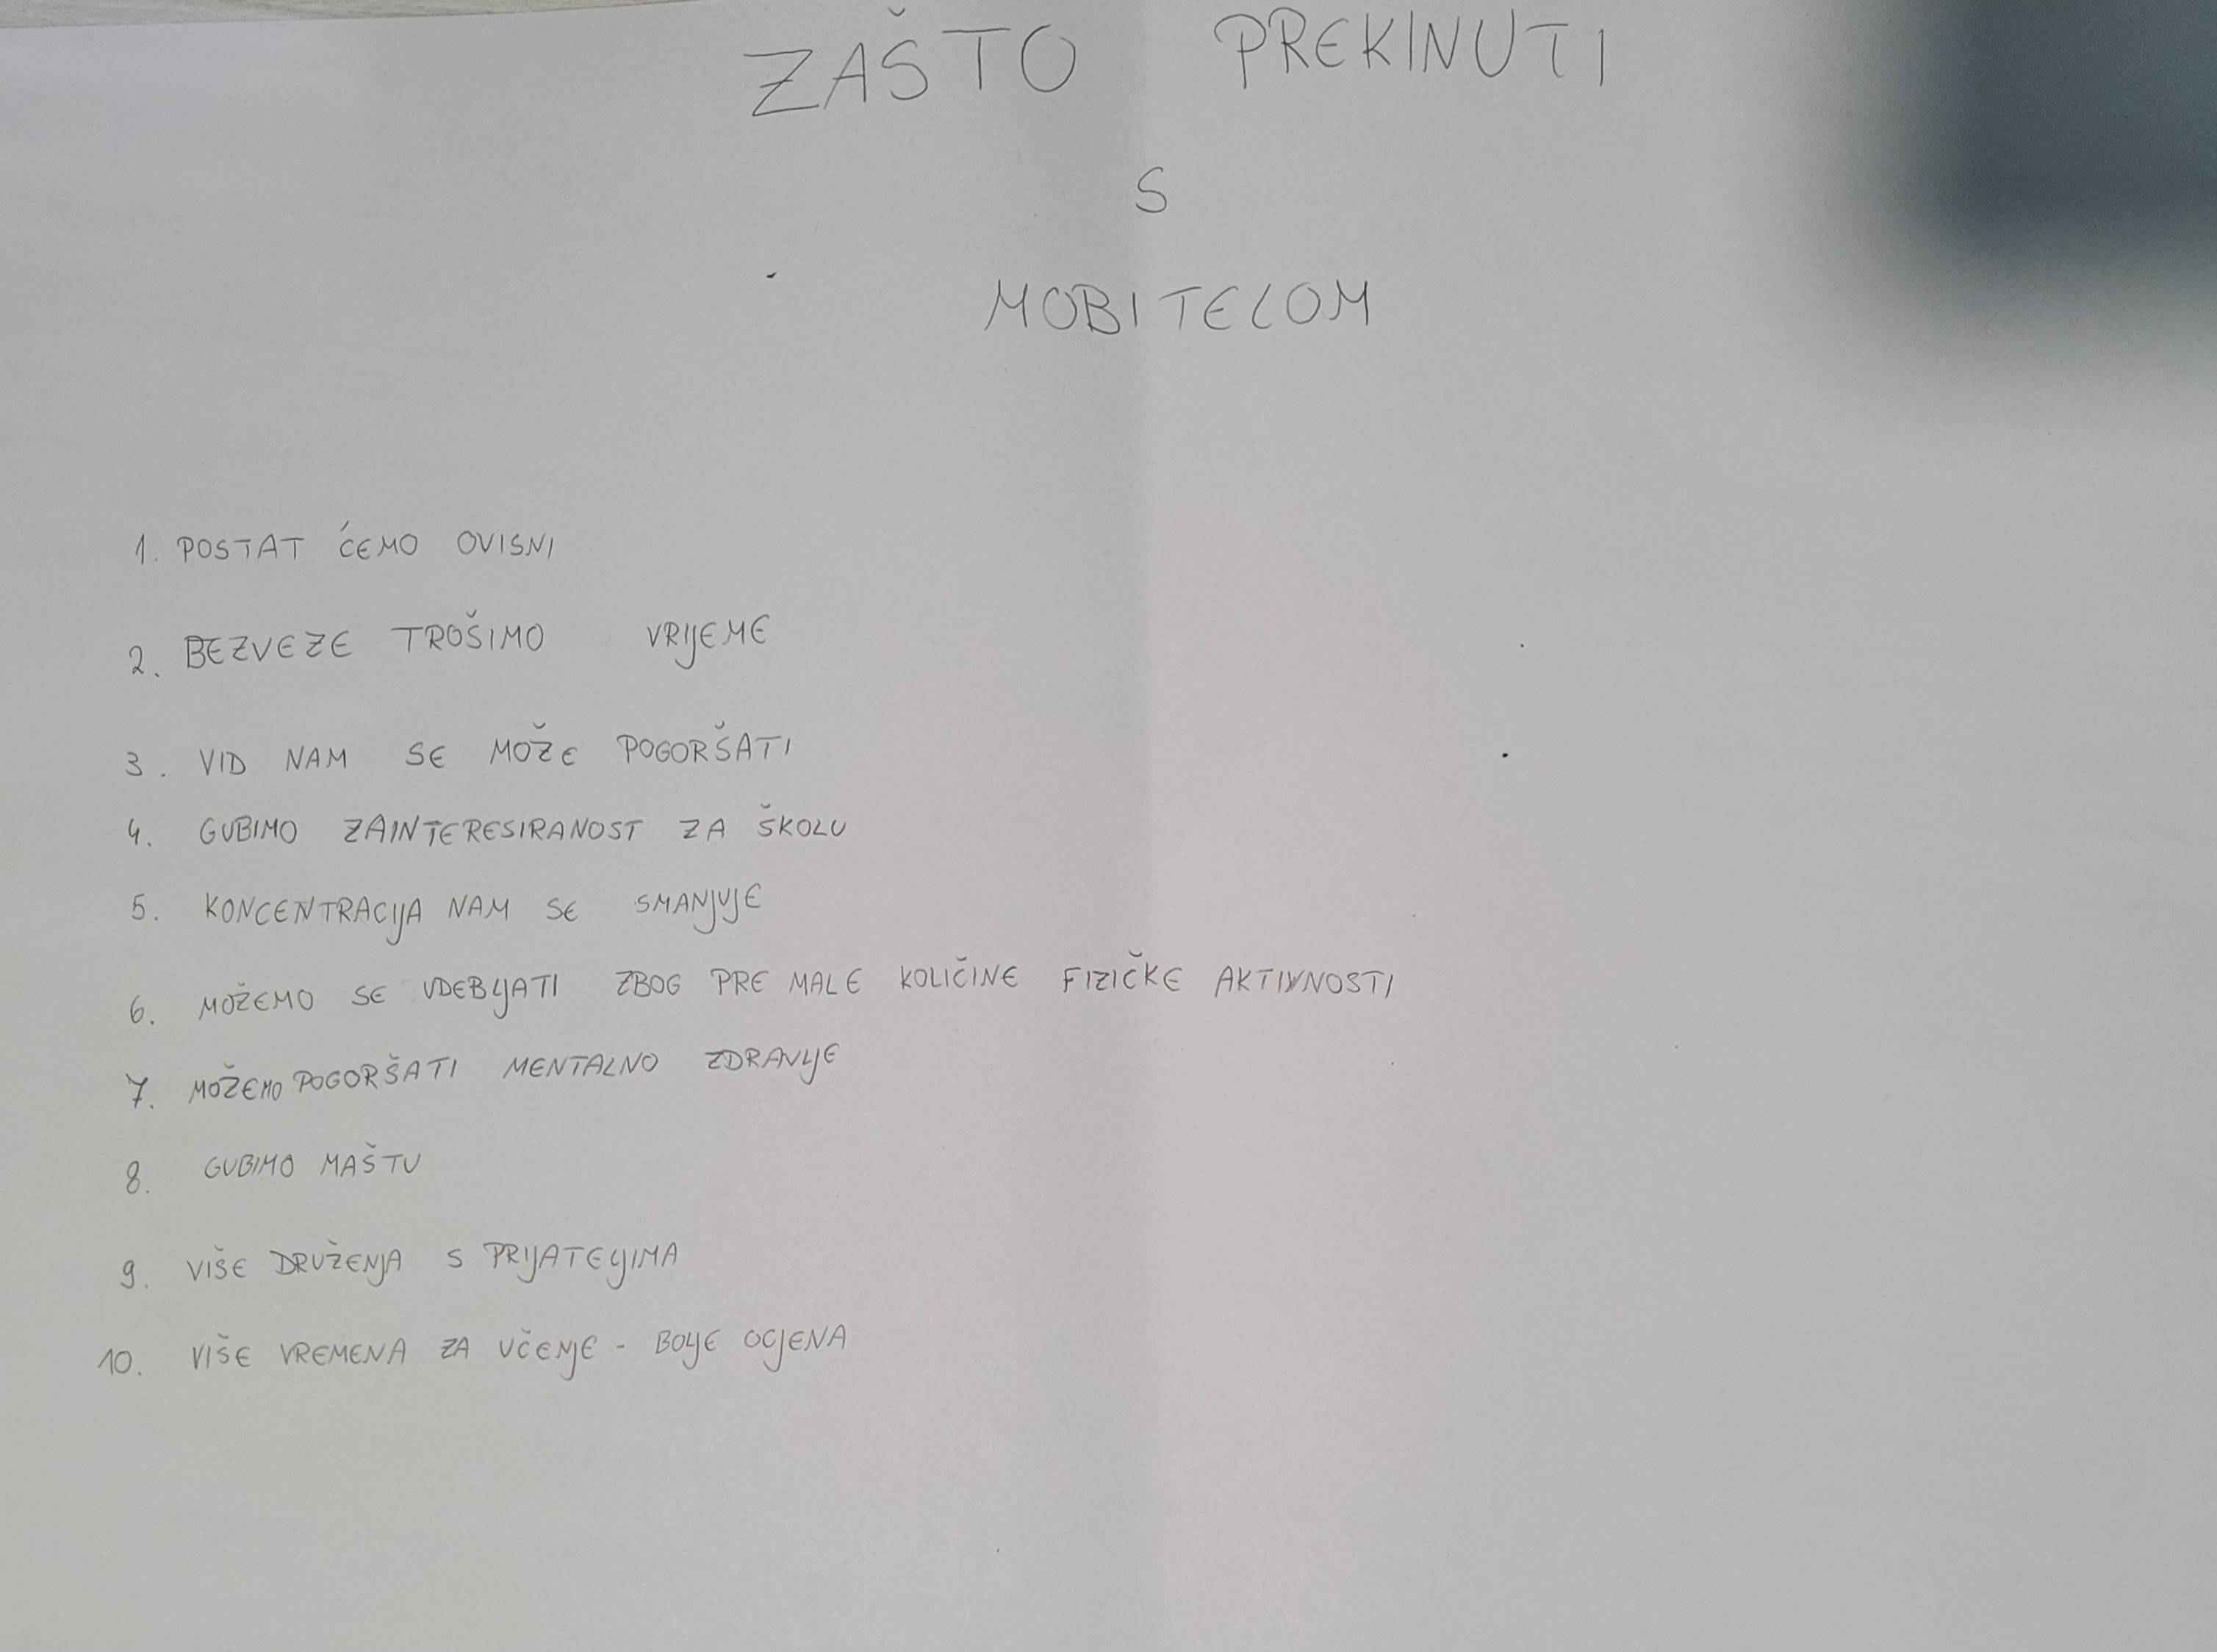 ZAŠTO PREKINUTI
S
MOBITELOM
1. POSTAT ĆEMO OVISNI
2. BEZVEZE TROŠIMO VRIJEME
3. VID NAM SE MOŽE POGORŠATI
4. GUBIMO ZAINTERESIRANOST ZA ŠKOLU
5. KONCENTRACIJA NAM SE SMANJUJE
6. MOŽEMO SE UDEBLJATI ZBOG PRE MALE KOLIČINE FIZIČKE AKTIVNOSTI
7. MOŽEMO POGORŠATI MENTALNO ZDRAVLJE
8. GUBIMO MAŠTU
9. VIŠE DRUŽENJA S PRIJATELJIMA
10. VIŠE VREMENA ZA UČENJE - BOLJE OCJENA